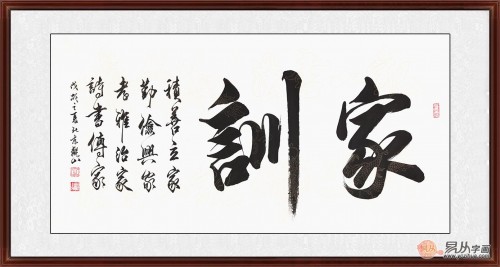 家訓
積善立家
勤儉興家
孝雅治家
詩書傳家
戊戌之夏北京
易从字画